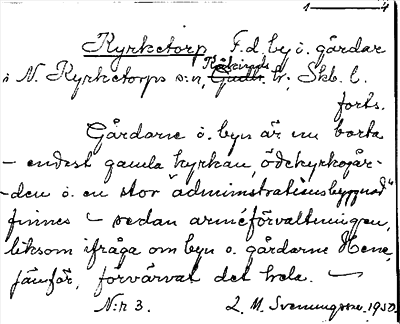 1 4
Kyrketorp F.d. by o. gårdar
i N. Kyrketorps s:n, Kåkinds
Gudh. hd, Skb. l.
forts.
Gårdarne o. byn är nu borta
– endest gamla kyrkan, ödekyrkogår-
-den o. en stor "administrationsbyggnad"
finnes – sedan arméförvaltningen,
liksom ifråga om byn o. gårdarne Hene,
jämför, förvärvat det hela. –
N:r 3. L. M. Svenungsson. 1950.